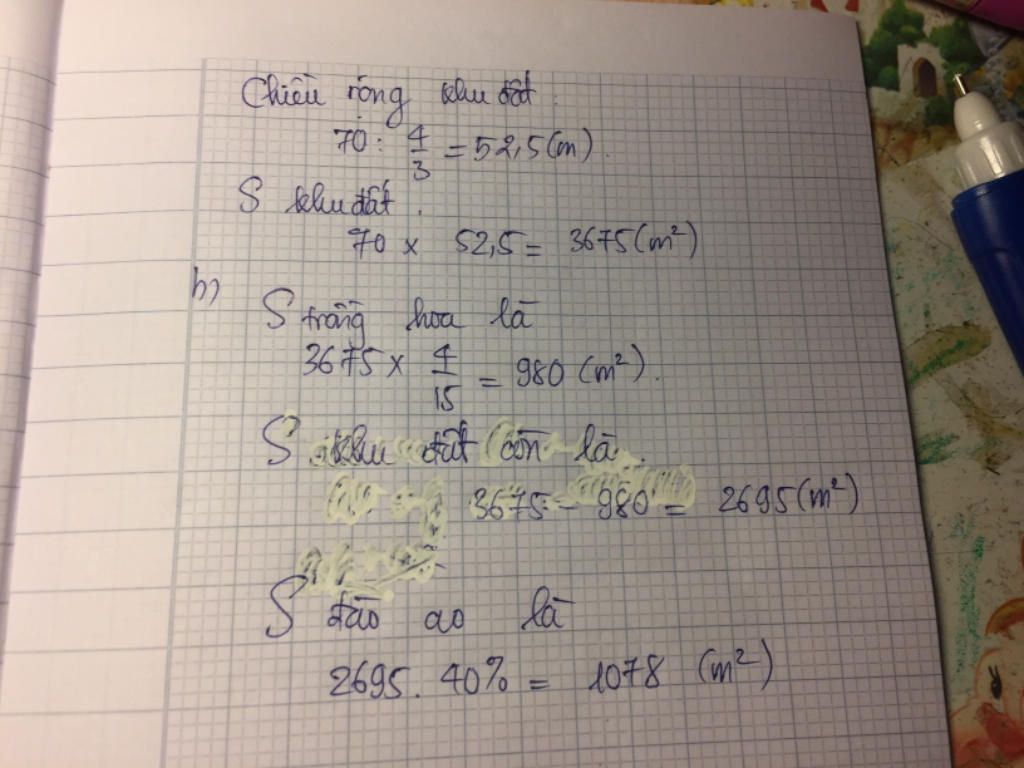 Chiều rộng khu đất.
70 : 4/3 = 52,5 (m).
S khu đất.
70 x 52,5 = 3675 (m²)
b) S trồng hoa là
3675 x 4/15 = 980 (m²).
S khu đất còn là.
3675 - 980 = 2695 (m²)
S đào ao là
2695 . 40% = 1078 (m²)